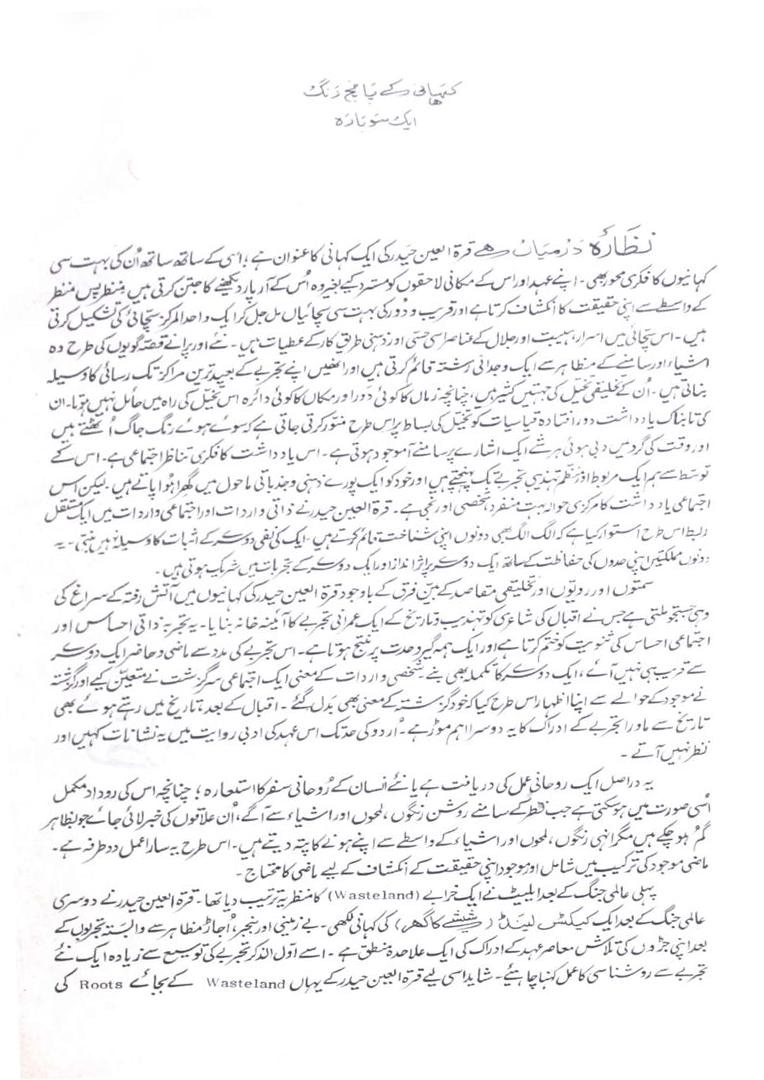 کہانی کے پانچ رنگ
ایک سو بارہ
نظارہ درمیاں ہے قرۃ العین حیدر کی ایک کہانی کا عنوان ہے؛ اسی کے ساتھ ساتھ اُن کی بہت سی
کہانیوں کا فکری محور بھی ۔ اپنے عہد اور اس کے مکانی لاحقوں کو مسترد کیے بغیر وہ اُس کے آر پار دیکھنے کا جتن کرتی ہیں۔ منظر پس منظر
کے واسطے سے اپنی حقیقت کا انکشاف کرتا ہے اور قریب و دُور کی بہت سی سچائیاں مل جل کر ایک واحد المرکز سچائی کی تشکیل کرتی
ہیں ۔ اس سچائی میں اسرار، ہیبت اور جلال کے عناصر اسی حسّی اور ذہنی طریقِ کار کے عطیات ہیں۔ نئے اور پرانے قصّہ گویوں کی طرح وہ
اشیاء اور سامنے کے مظاہر سے ایک وجدانی رشتہ قائم کرتی ہیں اور انھیں اپنے تجربے کے بعید ترین مراکز تک رسائی کا وسیلہ
بناتی ہیں ۔ اُن کے تخلیقی تخیّل کی جہتیں کثیر ہیں، چنانچہ زماں کا کوئی دَور اور مکاں کا کوئی دائرہ اس تخیّل کی راہ میں حائل نہیں ہوتا۔ ان
کی تابناک یادداشت دور افتادہ قیاسیات کو تخیّل کی بساط پر اس طرح منوّر کرتی جاتی ہے کہ سوئے ہوئے رنگ جاگ اُٹھتے ہیں
اور وقت کی گرد میں دبی ہوئی ہر شے ایک اشارے پر سامنے آ موجود ہوتی ہے ۔ اس یادداشت کا فکری تناظر اجتماعی ہے۔ اس کے
توسّط سے ہم ایک مربوط اور منظّم تہذیبی تجربے تک پہنچتے ہیں اور خود کو ایک پورے ذہنی و جذباتی ماحول میں گھرا ہُوا پاتے ہیں ۔ لیکن اس
اجتماعی یادداشت کا مرکزی حوالہ بہت منفرد شخصی اور نجی ہے ۔ قرۃ العین حیدر نے ذاتی واردات اور اجتماعی واردات میں ایک مستقل
ربط اس طرح استوار کیا ہے کہ الگ الگ بھی دونوں اپنی شناخت قائم رکھتے ہیں۔ ایک کی نفی دوسرے کے اثبات کا وسیلہ نہیں بنتی ۔ یہ
دونوں مملکتیں اپنی حدوں کی حفاظت کے ساتھ ایک دوسرے پر اثر انداز اور ایک دوسرے کے تجربات میں شریک ہوتی ہیں ۔
سمتوں اور رویّوں اور تخلیقی مقاصد کے بیّن فرق کے باوجود قرۃ العین حیدر کی کہانیوں میں آتشِ رفتہ کے سراغ کی
وہی جستجو ملتی ہے جس نے اقبال کی شاعری کو تہذیب و تاریخ کے ایک عمرانی تجربے کا آئینہ خانہ بنایا ۔ یہ تجربہ ذاتی احساس اور
اجتماعی احساس کی ثنویت کو ختم کرتا ہے اور ایک ہمہ گیر وحدت پر منتج ہوتا ہے۔ اس تجربے کی مدد سے ماضی و حاضر ایک دوسرے
سے قریب ہی نہیں آئے، ایک دوسرے کا تکملہ بھی بنے ۔ شخصی واردات کے معنی ایک اجتماعی سرگزشت نے متعیّن کیے اور گزشتہ
نے موجود کے حوالے سے اپنا اظہار اس طرح کیا کہ خود گزشتہ کے معنی بھی بدل گئے ۔ اقبال کے بعد تاریخ میں رہتے ہوئے بھی
تاریخ سے ماورا تجربے کے ادراک کا یہ دوسرا اہم موڑ ہے۔ اُردو کی حد تک اس عہد کی ادبی روایت میں یہ نشانات کہیں اور
نظر نہیں آتے ۔
یہ دراصل ایک روحانی عمل کی دریافت ہے یا نئے انسان کے رُوحانی سفر کا استعارہ؛ چنانچہ اس کی روداد مکمل
اُسی صورت میں ہو سکتی ہے جب نظر کے سامنے روشن رنگوں، لمحوں اور اشیاء سے آگے، اُن علاقوں کی خبر لائی جائے جو بظاہر
گم ہو چکے ہیں مگر انہی رنگوں، لمحوں اور اشیاء کے واسطے سے اپنے ہونے کا پتہ دیتے ہیں۔ اس طرح یہ سارا عمل دو طرفہ ہے۔
ماضی موجود کی ترکیب میں شامل اور موجود اپنی حقیقت کے انکشاف کے لیے ماضی کا محتاج ۔
پہلی عالمی جنگ کے بعد ایلیٹ نے ایک خرابے (Wasteland) کا منظریہ ترتیب دیا تھا ۔ قرۃ العین حیدر نے دوسری
عالمی جنگ کے بعد ایک کیکٹس لینڈ (شیشے کا گھر) کی کہانی لکھی ۔ بے زمینی اور بنجر، اُجاڑ مظاہر سے وابستہ تجربوں کے
بعد اپنی جڑوں کی تلاش معاصر عہد کے ادراک کی ایک علاحدہ منطق ہے ۔ اسے اوّل الذکر تجربے کی توسیع سے زیادہ ایک نئے
تجربے سے روشناسی کا عمل کہنا چاہیئے۔ شاید اسی لیے قرۃ العین حیدر کے یہاں Wasteland کے بجائے Roots کی